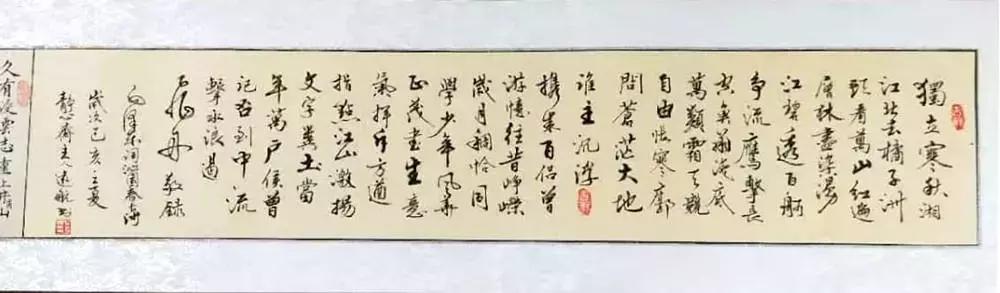 獨立寒秋湘
江北去橘子洲
頭看萬山紅遍
層林盡染漫
江碧透百舸
争流鷹擊長
空魚翔淺底
萬類霜天競
自由悵寥廓
問蒼茫大地
誰主沉浮
攜来百侣曾
游憶往昔崢嶸
歲月稠恰同
學少年風華
正茂書生意
氣揮斥方遒
指點江山激揚
文字糞土當
年萬户侯曾
記否到中流
擊水浪遏
飛舟敬録
毛澤東詞沁園春
歲次己亥之夏
静心齋主遠航书
久有凌雲志重上井岡山